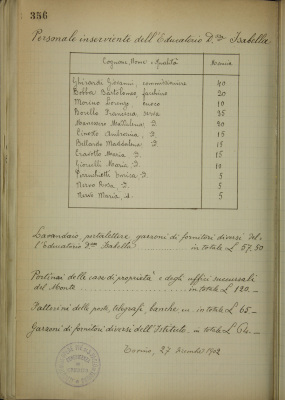 356
Personale inserviente dell'Educatorio D.ssa Isabella
Cognome, Nome e Qualità Mancia
Ghirardi Giovanni, commissioniere 40
Bobba Bartolomeo, facchino 20
Morino Lorenzo cuoco 10
Borello Francesca serva 25
20
Ambrosia, I. 15
Billardi Maddalena, I. 15
Maria I. 15
Gionelli Maria I. 10
Enrica I. 5
Nervo I. 5
Nervo Maria, I. 5
Lavandaio, portalettere, garzoni di fornitori diversi del-
l'Educatorio D.ssa Isabella in totale L 57.50
Portinai delle case di proprietà e degli uffici succursali
del Monte in totale L 120.—
Fattorini delle poste, telegrafi, banche in totale L 65—
Garzoni di fornitori diversi dell'Istituto, in totale L 64.—
Torino, 27 Dicembre 1902